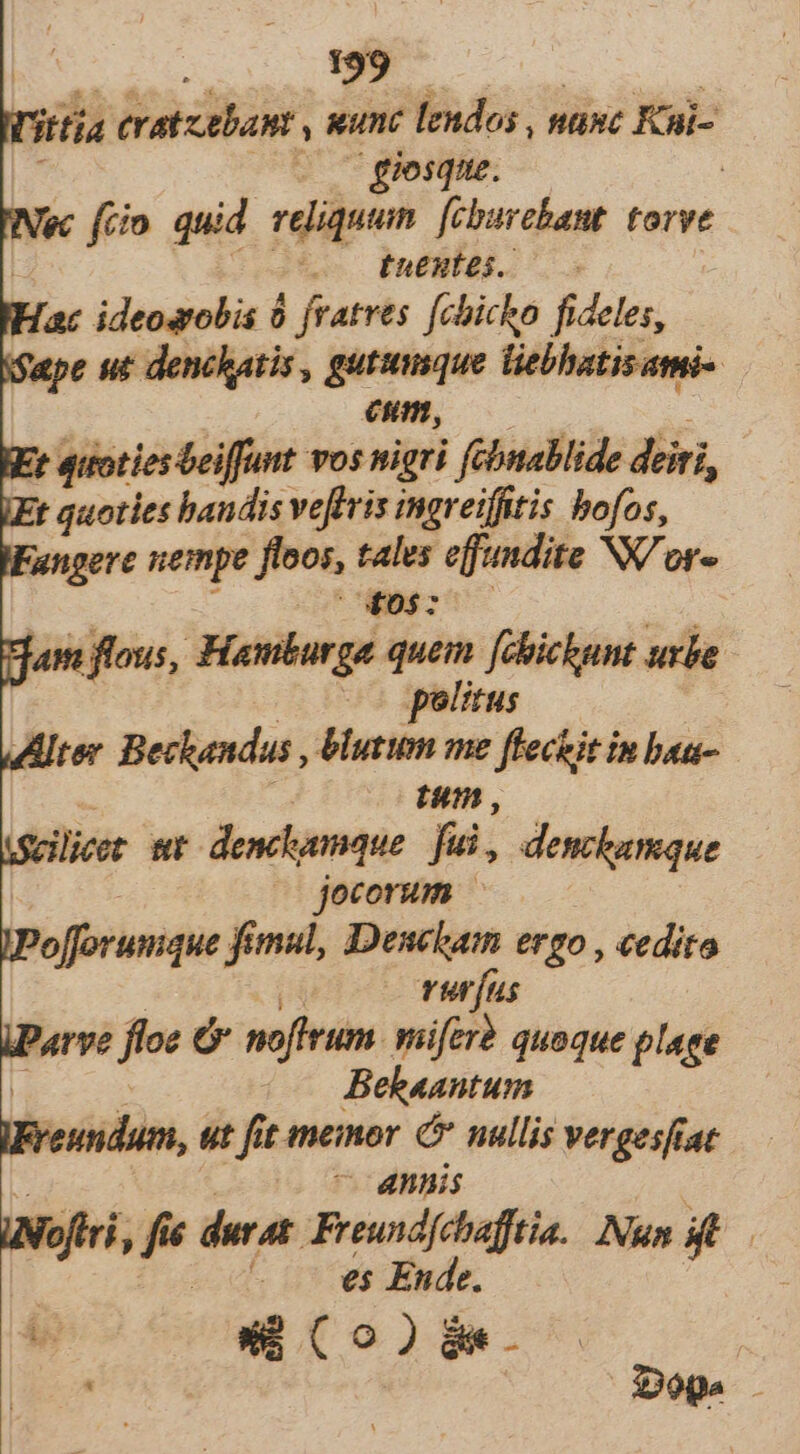 199
Tittia cratzebant, nunc lendos, nunc Kni-
giosque.
Nec ſcio quid reliquum ſchurebant torve
tuentes.
Hac ideo vobis ô fratres ſchicko fideles,
Sæpe ut denckatis, gutumque liebhatis ami-
cum,
Et quoties beiſſunt vos nigri ſchnablide deiri,
Et quoties handis veſtris ingreiſſitis hoſos,
Fangere nempe floos, tales effundite Wor-
tos:
Jam flous, Hamburga quem ſchickunt urbe
politus
Alter Beckandus, blutum me ſteckit in hau-
tum,
Scilicet ut denckamque ſui, denckamque
jocorum
Poſſorumque ſimul, Denckam ergo, cedito
rurſus
Parve floe & noſtrum miſerè quoque plage
Bekaantum
Freundum, ut ſit memor & nullis vergesſiat
annis
Noſtri, ſic durat Freundſchafftia. Nun iſt
es Ende.
( o )
Dop-